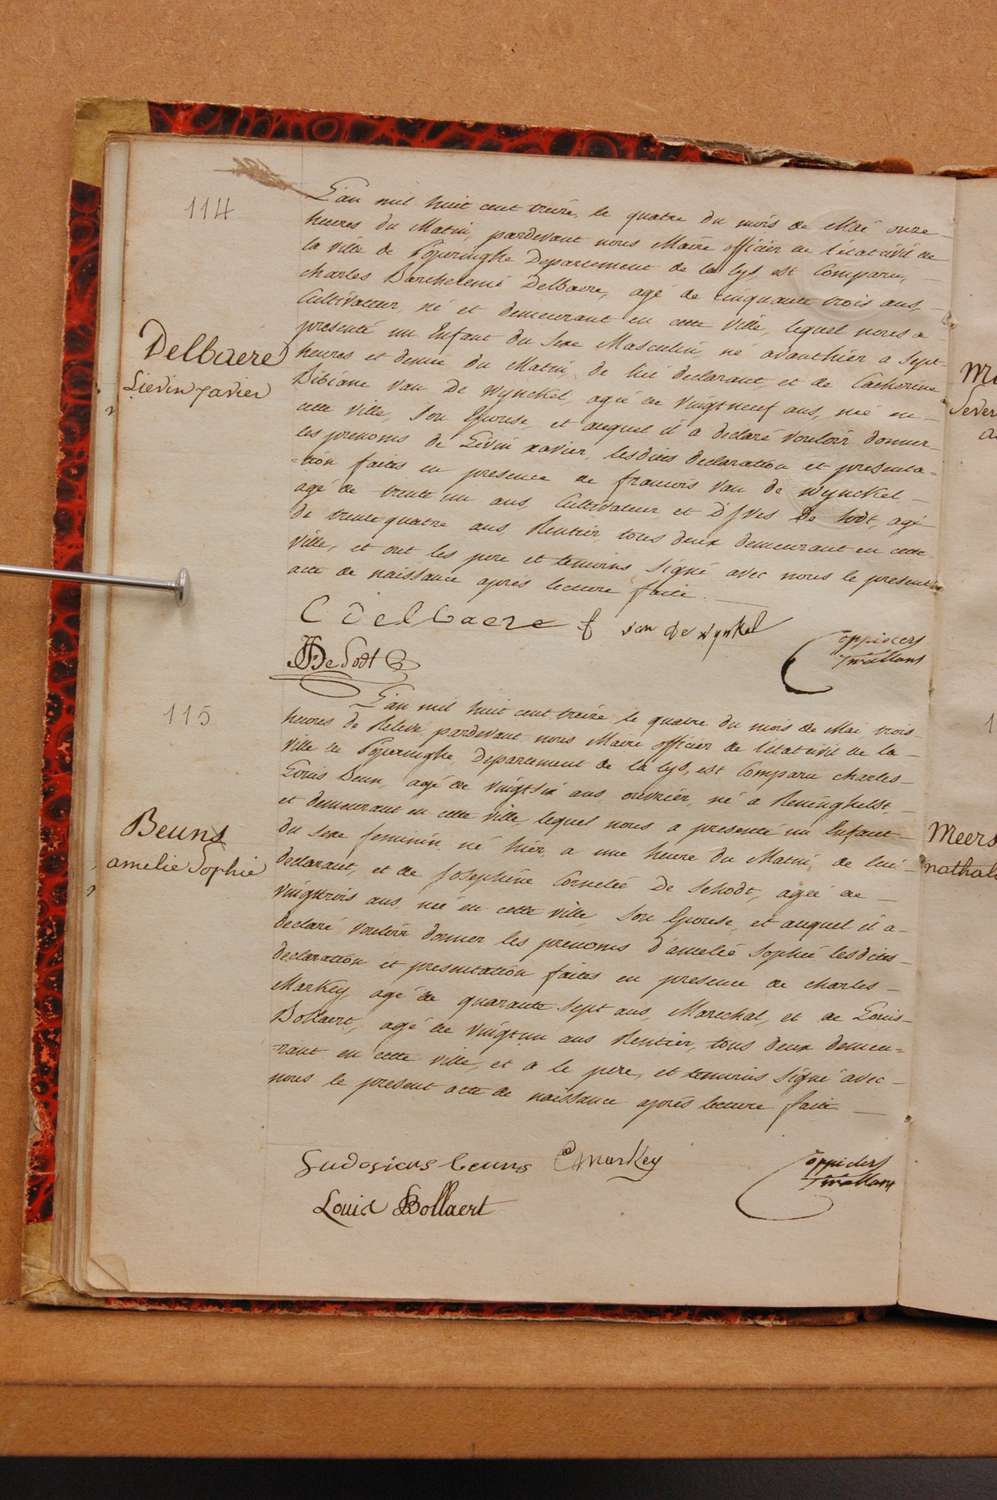 114
L'an mil huit cent treize, le quatre du mois de Mai onze
heures du Matin, pardevant nous Maire officier de l'état civil de
la ville de Poperinghe Département de la Lys est Comparu,
Charles Barthelemi Delbaere, agé de cinquante trois ans,
Cultivateur, né et demeurant en cette Ville, lequel nous a
presenté un Enfant du Sexe Masculin, né avanthier a Sept
heures et demie du Matin, de lui declarant et de Catherine
Bibiane Van De Wynckel, agée de Vingtneuf ans, née en
cette ville, Son Epouse, et auquel il a declaré vouloir donner
les prenoms de Livin xavier, lesdites declaration et presenta-
-tion faites en presence de francois Van de Wynckel
agé de trente un ans, Cultivateur et D'Yves De Sodt, agé
de trente quatre ans, Rentier, tous deux demeurant en cette
ville, et ont les pere et temoins signé avec nous le present
acte de naissance après lecture faite.
Delbaere
Lievin xavier
C Delbaere f van de wynkel
De Sodt
115
L'an mil huit cent treize, le quatre du mois de Mai trois
heures de Relevé, pardevant nous Maire officier de l'état civil de la
ville de Poperinghe, Departement de la Lys, est Comparu Charles
Louis Beun, agé de vingtsix ans ouvrier, né a Reninghelst,
et demeurant en cette ville lequel nous a presenté un Enfant
du sexe feminin, né hier, a une heure du Matin, de lui
declarant, et de Josephine Cornelie De Schodt, agée de
vingttrois ans, née en cette ville, Son Epouse, et auquel il a
declaré vouloir donner les prenoms d'amelie Sophie lesdites
declaration et presentation faites en presence de Charles
Markey agé de quarante Sept ans, Marechal, et de Louis
Bollaert, agé de Vingtun ans Rentier, tous deux demeu=
-rant en cette ville, et a le pere, et temoins Signé avec
nous le present acte de naissance après lecture faite
Beuns
amelie Sophie
Ludovicus beuns C Markey
Louis Bollaert
Meers